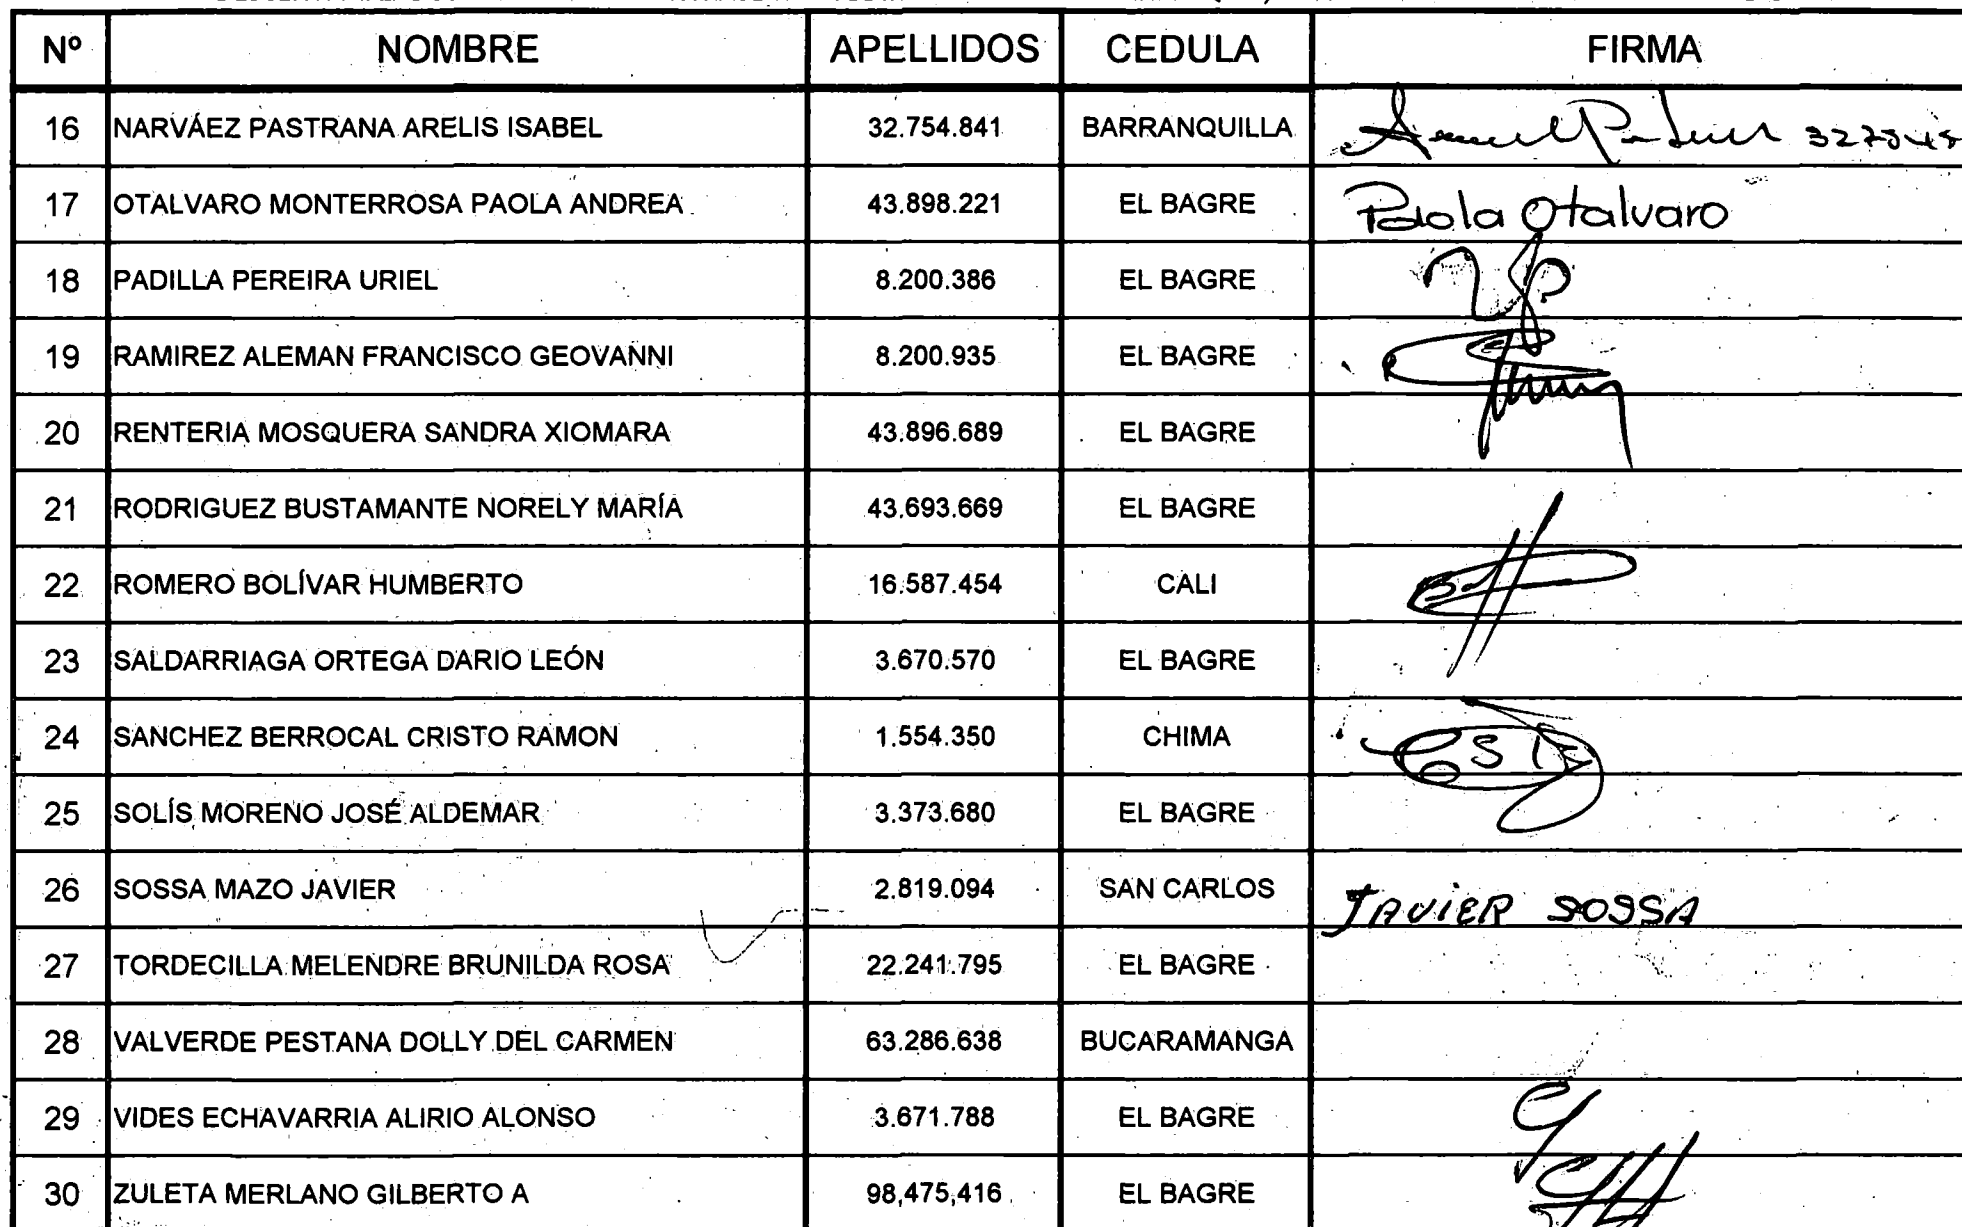 Nº NOMBRE APELLIDOS CEDULA FIRMA
16 NARVÁEZ PASTRANA ARELIS ISABEL 32.754.841 BARRANQUILLA
17 OTALVARO MONTERROSA PAOLA ANDREA 43.898.221 EL BAGRE Paola Otalvaro
18 PADILLA PEREIRA URIEL 8.200.386 EL BAGRE
19 RAMIREZ ALEMAN FRANCISCO GEOVANNI 8.200.935 EL BAGRE
20 RENTERIA MOSQUERA SANDRA XIOMARA 43.896.689 EL BAGRE
21 RODRIGUEZ BUSTAMANTE NORELY MARÍA 43.693.669 EL BAGRE
22 ROMERO BOLÍVAR HUMBERTO 16.587.454 CALI
23 SALDARRIAGA ORTEGA DARIO LEÓN 3.670.570 EL BAGRE
24 SANCHEZ BERROCAL CRISTO RAMON 1.554.350 CHIMA
25 SOLÍS MORENO JOSÉ ALDEMAR 3.373.680 EL BAGRE
26 SOSSA MAZO JAVIER 2.819.094 SAN CARLOS JAVIER SOSSA
27 TORDECILLA MELENDRE BRUNILDA ROSA 22.241.795 EL BAGRE
28 VALVERDE PESTANA DOLLY DEL CARMEN 63.286.638 BUCARAMANGA
29 VIDES ECHAVARRIA ALIRIO ALONSO 3.671.788 EL BAGRE
30 ZULETA MERLANO GILBERTO A 98,475,416 EL BAGRE